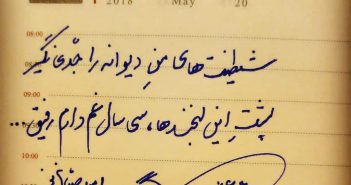 2018 May 20
08:00
شیطنت‌های منِ دیوانه را جدّی نگیر
09:00
پشتِ این لبخندها، سی سال غم دارم رفیق...
10:00